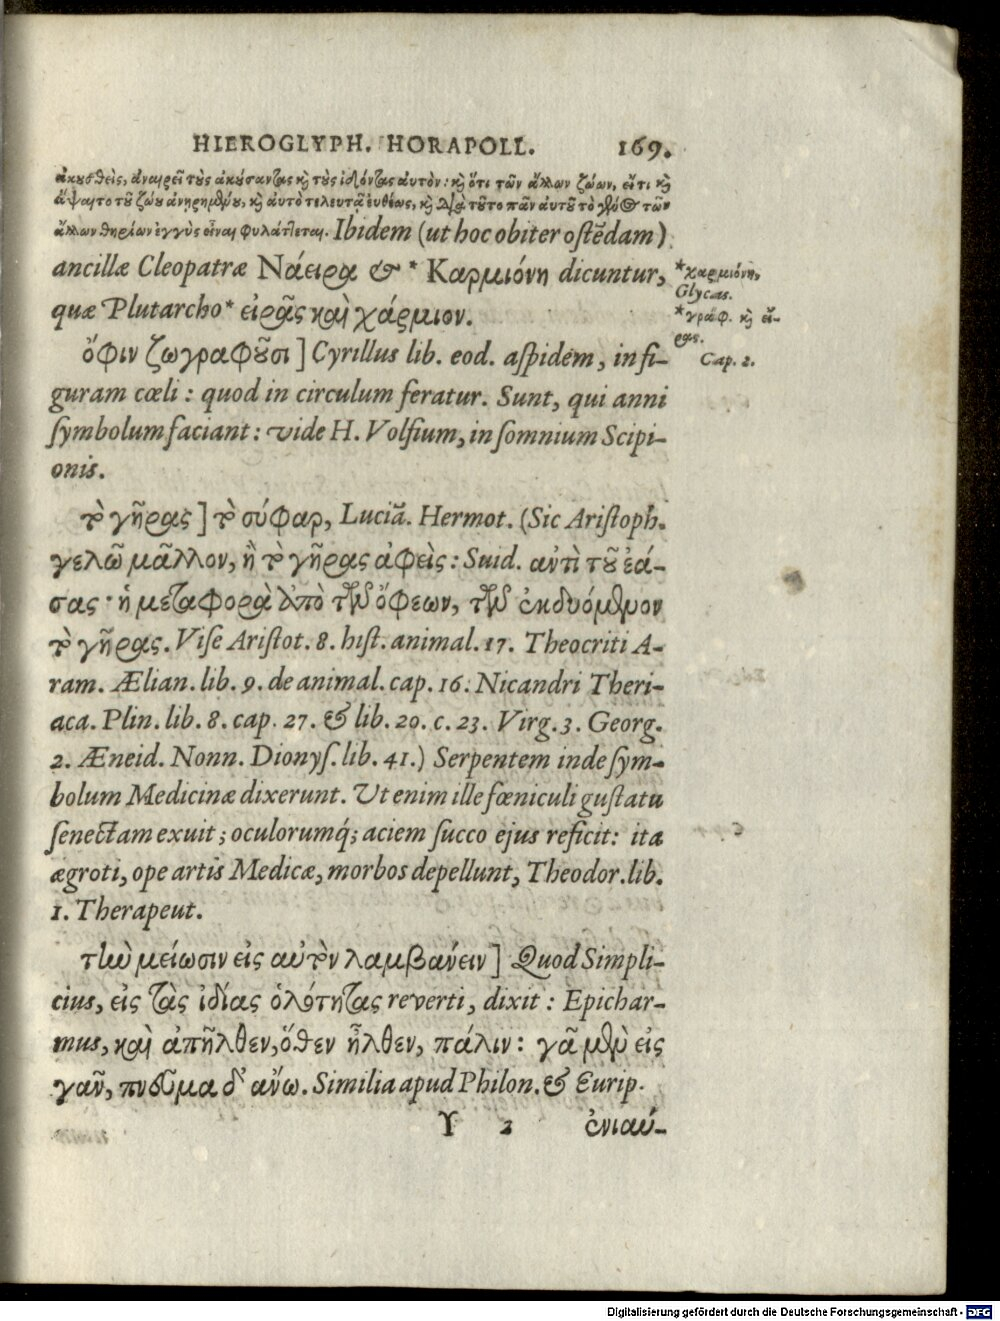 HIEROGLYPH. HORAPOLL. 169.
ἀκουσθεὶς, ἀναιρεῖ τοὺς ἀκούσαντας καὶ τοὺς ἰδόντας αὐτόν: καὶ ὅτι τῶν ἄλλων ζώων, εἴ τι καὶ
ἅψαιτο τοῦ ζώου ἀνῃρημένου, καὶ αὐτὸ τελευτᾷ εὐθέως, καὶ διὰ τοῦτο πᾶν αὐτοῦ τὸ γένος τῶν
ἄλλων θηρίων ἐγγὺς εἶναι φυλάττεται. Ibidem (ut hoc obiter ostẽdam)
ancillæ Cleopatræ Νάειρα & * Καρμιόνη dicuntur,
quæ Plutarcho* εἰρᾶς καὶ χάρμιον.
*χαρμιόνη,
Glycas.
*γράφ. καὶ εἴ-
ρας.
Cap. 2.
ὄφιν ζωγραφοῦσι] Cyrillus lib. eod. aſpidem, in fi-
guram cœli: quod in circulum feratur. Sunt, qui anni
ſymbolum faciant: vide H. Volfium, in ſomnium Scipi-
onis.
τὸ γῆρας] τὸ σύφαρ, Luciã. Hermot. (Sic Ariſtoph.
γελῶ μᾶλλον, ἢ τὸ γῆρας ἀφεὶς: Suid. αντὶ τοῦ ἐά-
σας· ἡ μεταφορὰ ἀπὸ τῶν ὄφεων, τῶν ἐκδυόμενον
τὸ γῆρας. Viſe Ariſtot. 8. hiſt. animal. 17. Theocriti A-
ram. Ælian. lib. 9. de animal. cap. 16. Nicandri Theri-
aca. Plin. lib. 8. cap. 27. & lib. 20. c. 23. Virg. 3. Georg.
2. Æneid. Nonn. Dionyſ. lib. 41.) Serpentem inde ſym-
bolum Medicinæ dixerunt. Ut enim ille fœniculi guſtatu
ſenectam exuit; oculorumq́; aciem ſucco ejus reficit: ita
ægroti, ope artis Medicæ, morbos depellunt, Theodor. lib.
1. Therapeut.
τὴν μείωσιν εἰς αὐτὸν λαμβανειν] Quod Simpli-
cius, εἰς τὰς ἰδίας ὁλότητας reverti, dixit: Epichar-
mus, καὶ ἀπῆλθεν, ὅθεν ἦλθεν, πάλιν: γᾶ μὲν εἰς
γαῦ, πνεῦμα δ' ἄνω. Similia apud Philon. & Eurip.
Y 2 ἐνιαύ-
Digitalisierung gefördert durch die Deutsche Forschungsgemeinschaft - DFG